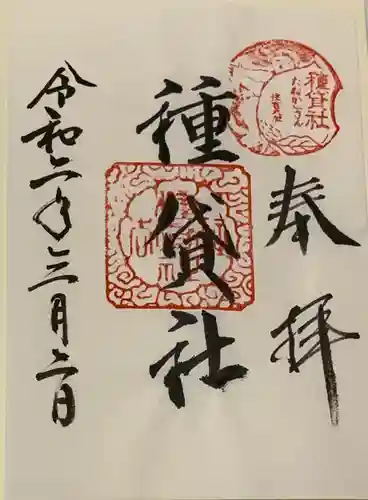 奉拝
種貸社
たねかしさん
住吉大社
種貸社
令和六年三月六日